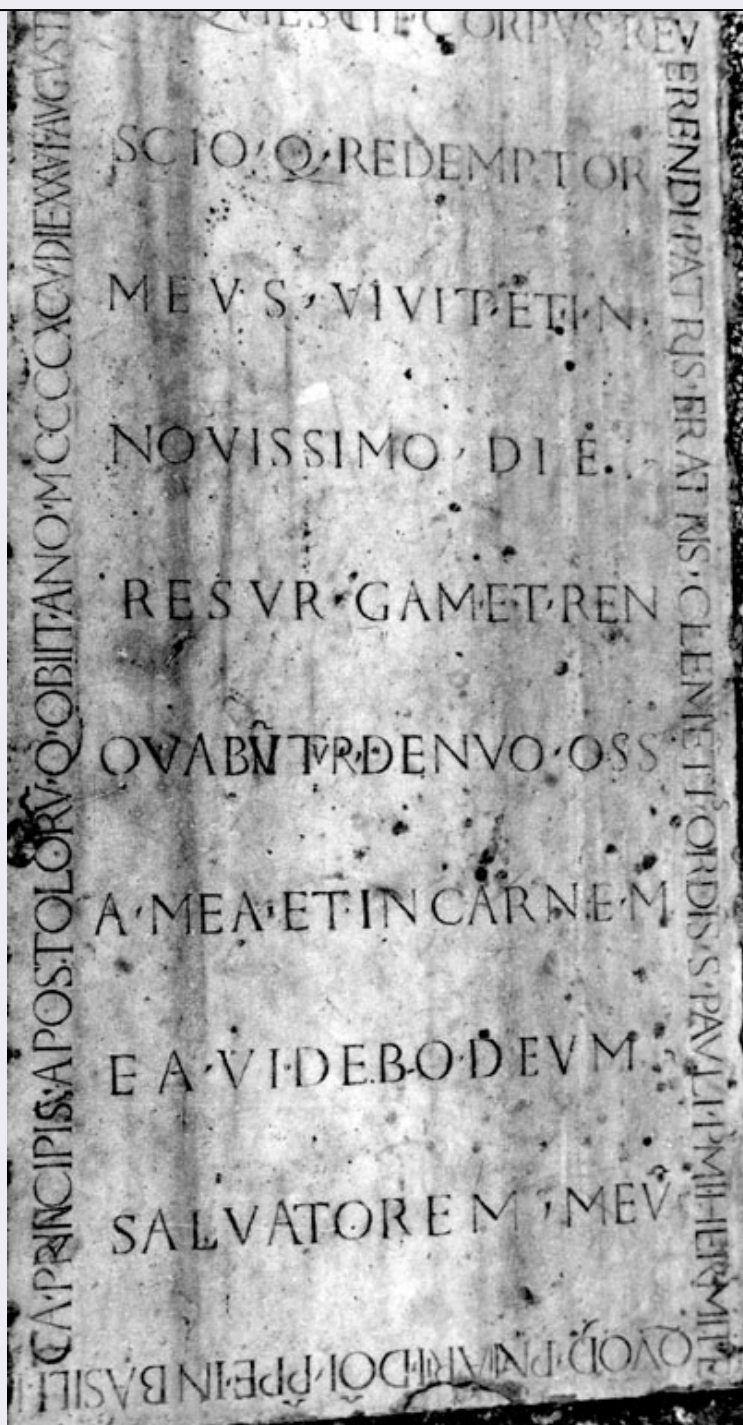 QUIESCIT CORPVS REV
ERENDI·PATRIS·FRATRIS·CLEMETI ORDIS·S·PAVLI·PMI·HERMITE
QVOD·PNIARI·DOI·PPE·IN BASILI
CA·PRINCIPIS·APOSTOLORV·Q·OBIIT·ANO·MCCCCXCV·DIE·XXVI·AVGVSTI
SCIO·Q·REDEMPTOR
MEVS·VIVIT·ET·IN·
NOVISSIMO·DIE·
RESVR·GAM·ET·REN
OVABŨTVR·DENVO·OSS
A·MEA·ET·IN CARNE·M
EA·VIDEBO·DEVM
SALVATOREM·MEṼ